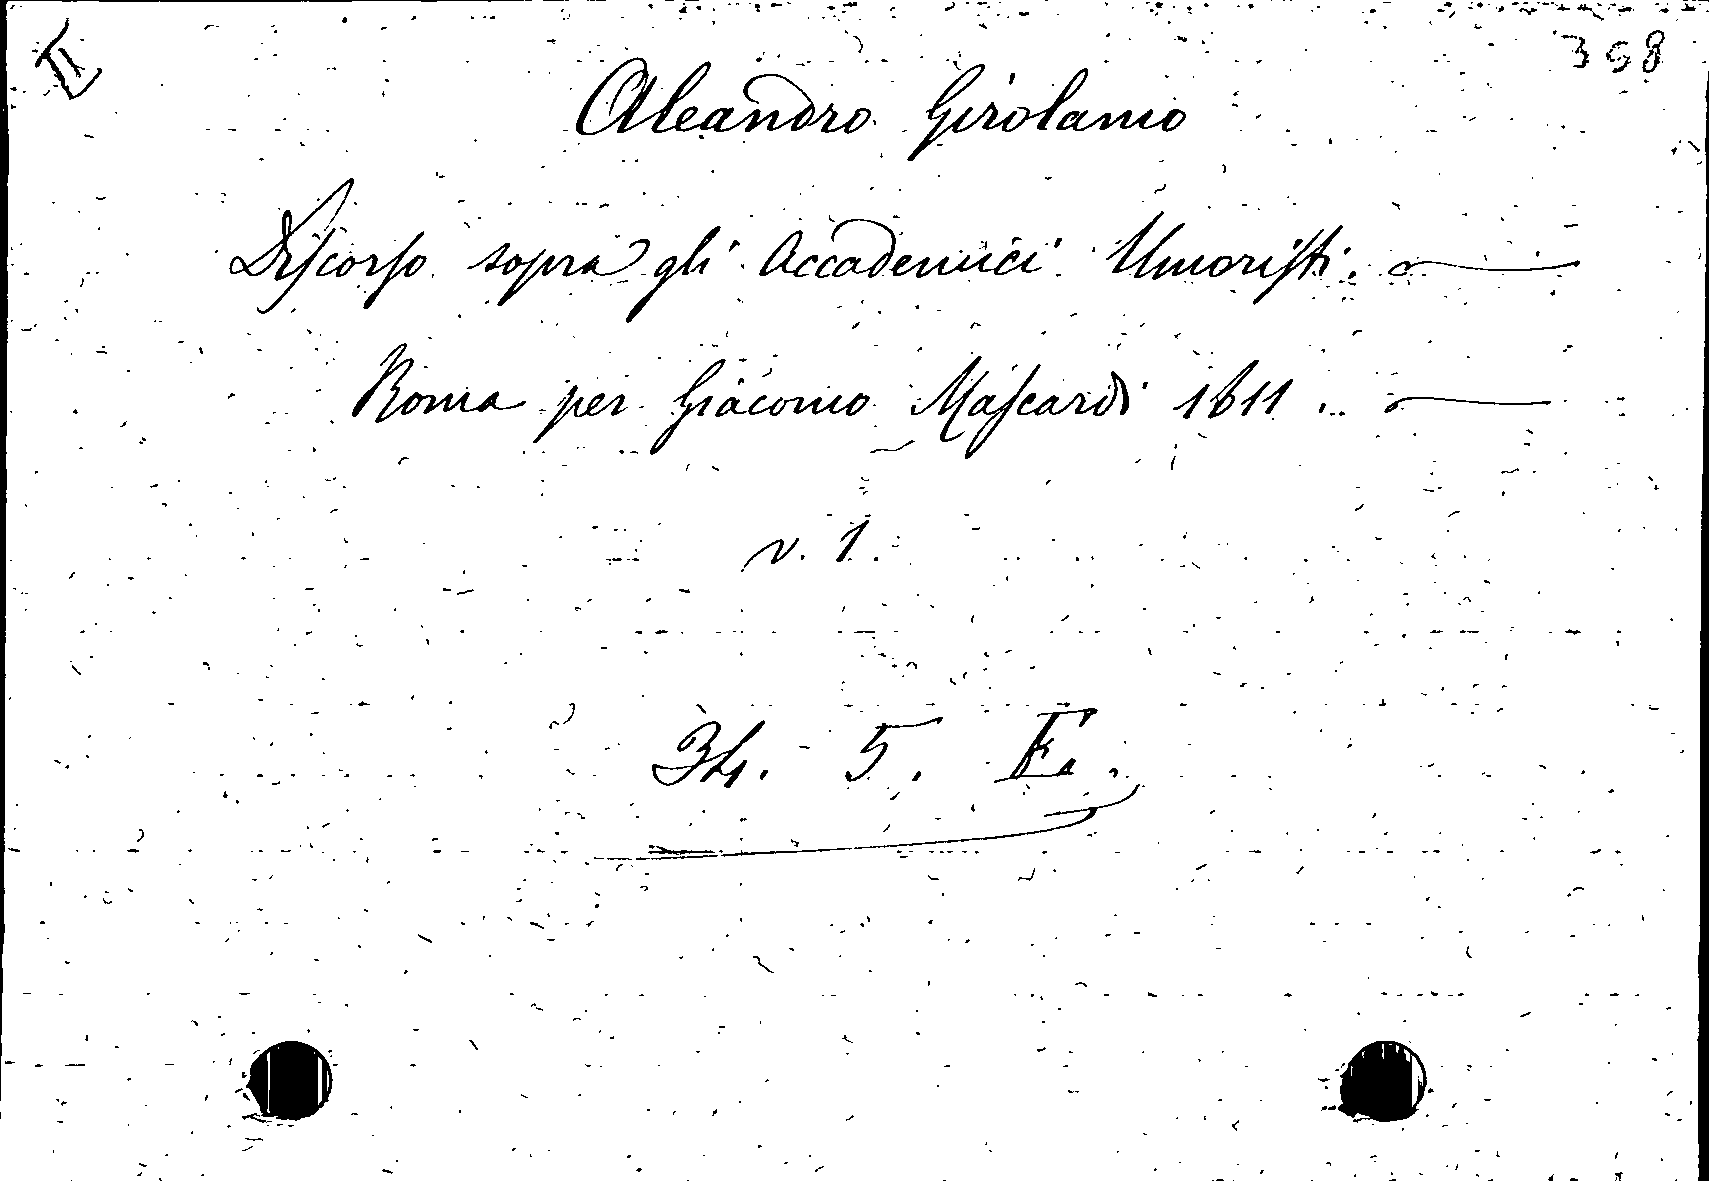 II
368
Aleandro Girolamo
Discorso sopra gli Accademici Umoristi.
Roma per Giacomo Mascardi 1611.
v. 1.
5. F.